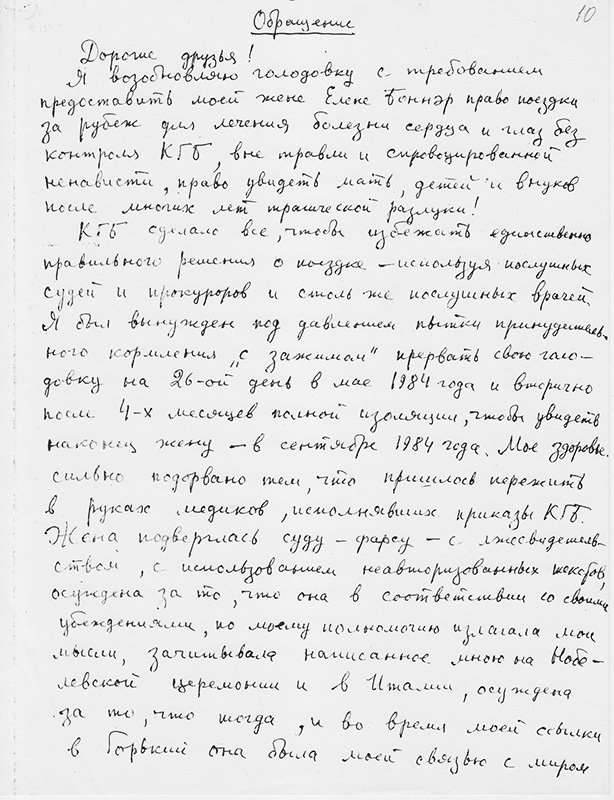 10
Обращение
Дорогие друзья!
Я возобновляю голодовку с требованием
предоставить моей жене Елене Боннэр право поездки
за рубеж для лечения болезни сердца и глаз без
контроля КГБ, вне травли и спровоцированной
ненависти, право увидеть мать, детей и внуков
после многих лет трагической разлуки!
КГБ сделало все, чтобы избежать единственно
правильного решения о поездке – используя послушных
судей и прокуроров и столь же послушных врачей.
Я был вынужден под давлением пытки принудитель-
ного кормления „с зажимом" прервать свою голо-
довку на 26-ой день в мае 1984 года и вторично
после 4-х месяцев полной изоляции, чтобы увидеть
наконец жену – в сентябре 1984 года. Мое здоровье
сильно подорвано тем, что пришлось пережить
в руках медиков, исполнявших приказы КГБ.
Жена подверглась суду – фарсу – с лжесвидетель-
ством, с использованием неавторизованных текстов,
осуждена за то, что она в соответствии со своими
убеждениями, по моему полномочию излагала мои
мысли, зачитывала написанное мною на Нобе-
левской церемонии и в Италии, осуждена
за то, что тогда, и во время моей ссылки
в Горький она была моей связью с миром